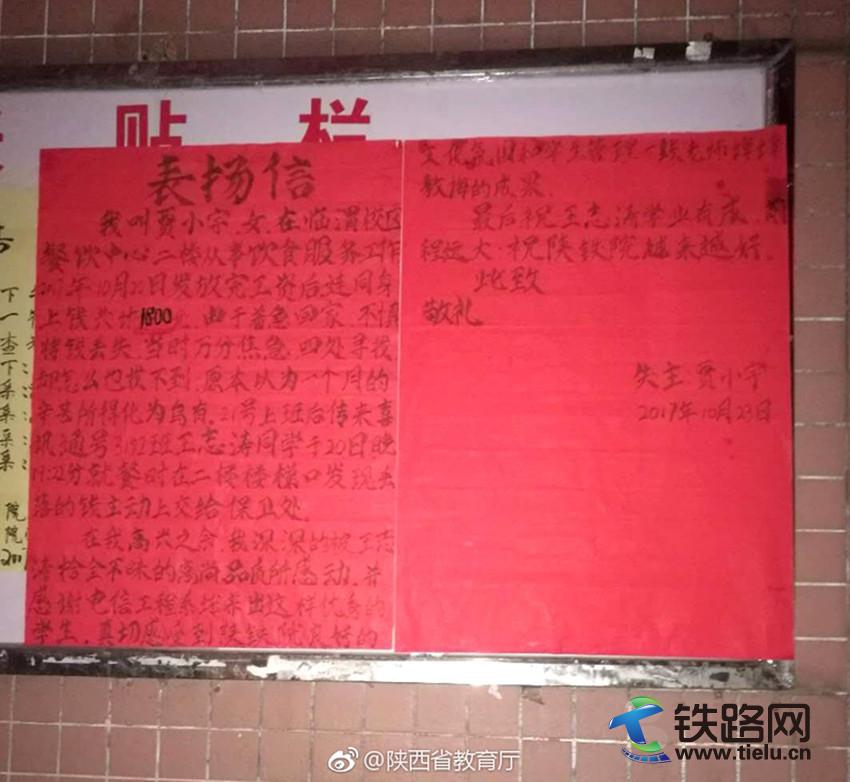 贴 栏
表扬信
我叫贾小宁,女,在临渭校区
餐饮中心二楼从事饮食服务工作
2017年10月20日发放完工资后连同身
上钱共计1800元,由于着急回家,不慎
将钱丢失,当时万分焦急,四处寻找
却怎么也找不到,原本以为一个月的
辛苦所得化为乌有,21号上班后传来喜
讯,通号3152班王志涛同学于20日晚
19:22分就餐时在二楼楼梯口发现
落的钱主动上交给保卫处。
在我高兴之余,我深深的被王志
涛拾金不昧的高尚品质所感动,并
感谢电信工程系培养出这样优秀的
学生,真切感受到陕铁院良好的
文化氛围和学生管理一线老师谆谆
教诲的成果。
最后祝王志涛学业有成,前
程远大,祝陕铁院越来越好。
此致
敬礼
失主:贾小宁
2017年10月23日
下
一
查
下:
采:
系:
系:
采:
院
院
201
@陕西省教育厅
铁路网
www.tielu.cn